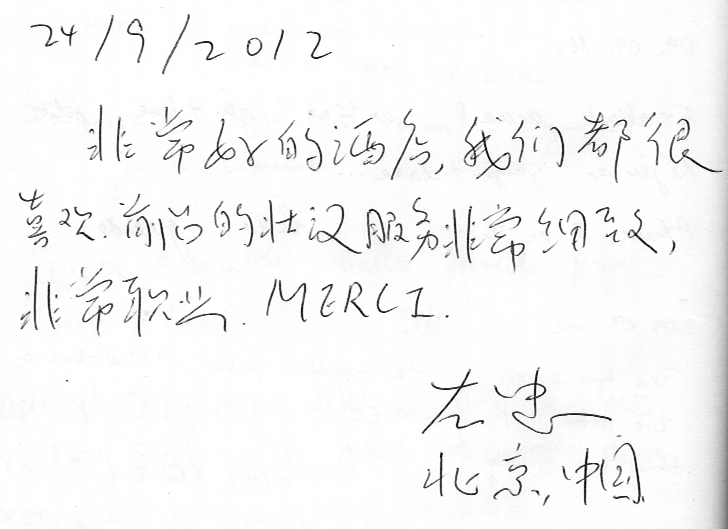 24/9/2012
非常好的酒店,我们都很
喜欢.前台的壮汉服务非常细致,
非常职业. MERCI.
左忠
北京,中国